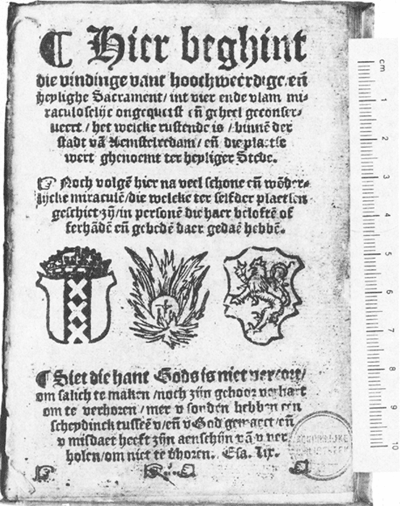 ¶ Hier beghint
die vindinge vant hoochweerdige/eñ
heylighe Sacrament/int vier ende vlam mi-
raculoselijc ongequetst eñ geheel geconser-
veert/het welcke rustende is/binnē der
stadt vā Aemstelredam/eñ die plaetse
wert ghenoemt ter heyliger Stede.
Noch volgē hier na veel schone eñ wōder-
lijcke miraculē/die welcke ter selfder plaetsen
geschiet zijn/in personē die haer beloftē of
ferhādē eñ gebedē daer gedaē hebbē.
¶ Siet die hant Gods is niet vercort/
om salich te maken/noch zijn gehoor verhart
om te verhoren/mer v sonden hebben een
scheydinck tusschē v/eñ v God gemaect/eñ
v misdaet heeft zijn aenschijn vā v ver
holen/om niet te vhoren. Esa. lix.
cm
1
2
3
4
5
6
7
8
9
10